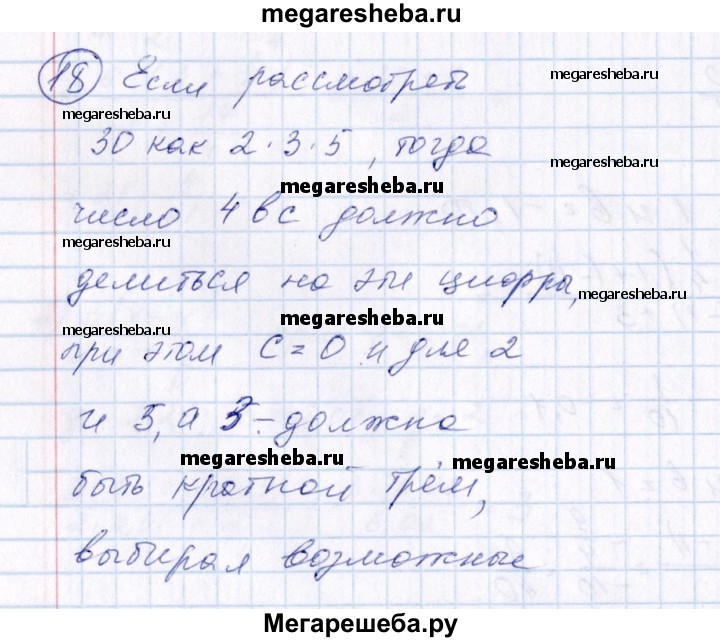 megaresheba.ru
18 Если рассмотреть
megaresheba.ru
megaresheba.ru
30 как 2·3·5, тогда
megaresheba.ru
megaresheba.ru
число 4вс должно
megaresheba.ru
делиться на эти цифры,
megaresheba.ru
megaresheba.ru
megaresheba.ru
при этом С=0 и для 2
и 5, а 3-должна
megaresheba.ru
megaresheba.ru
быть кратной трём,
выбирая возможные
Мегарешеба.ру